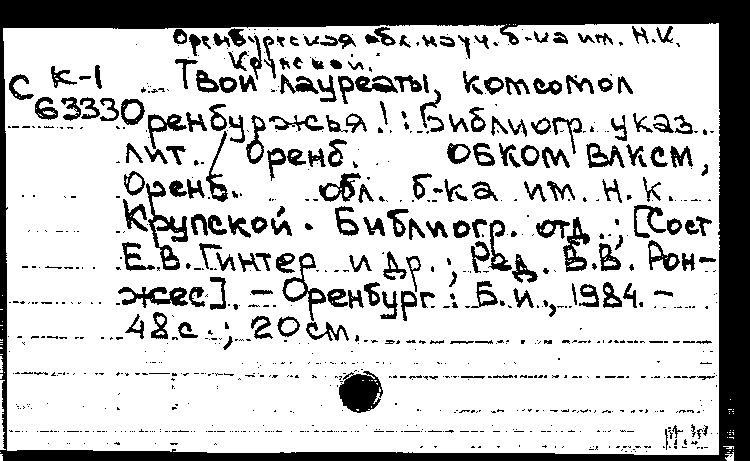 Оренбургская обл. науч. б-ка им. Н.К.
Крупской.
С К-1
63330
Твои лауреаты, комсомол
Оренбуржья! : Библиогр. указ.
лит. / Оренб. обком ВЛКСМ,
Оренб. обл. б-ка им. Н.К.
Крупской. Библиогр. отд.; [Сост
Е.В. Гинтер и др.; Ред. В.В. Рон-
жес]. – Оренбург : Б.и., 1984. –
48 с.; 20 см.